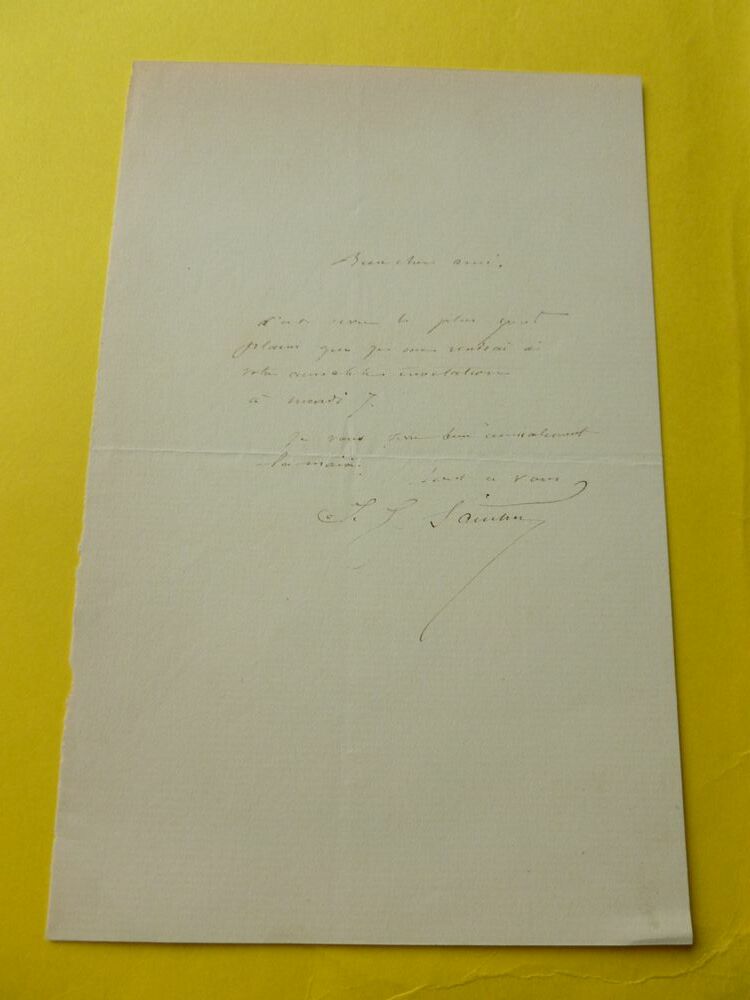 Bien cher ami.
C'est avec le plus grand
plaisir que je me rendrai à
votre aimable invitation
à mardi 7.
Je vous serre bien amicalement
la main.
tout à vous